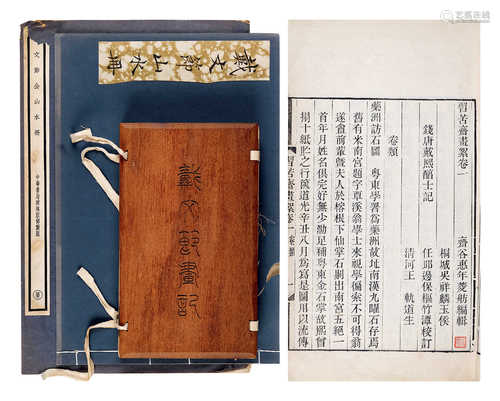 文節公山水冊
戴文節山水冊
戴文節畫記
習苦齋畫絮卷一
齋谷惠年菱舫編輯
錢唐戴熙醇士記
桐城吳祥麟玉俟
任邱邊保樞竹潭校訂
清河王 軌道生
卷類
藥洲訪石圖 粵東學署為藥洲故址南漢九曜石存焉
舊有米南宮題字覃溪翁學士來視學徧索不可得翁
遂僉前輩暨夫人於榕根下仙掌石剔出南宮五絕一
首年月姓名俱完好無少泐足補粵東金石掌故熙曾
搨十紙貯之行篋道光辛丑八月為寫是圖用以流傳
習苦齋畫絮卷一